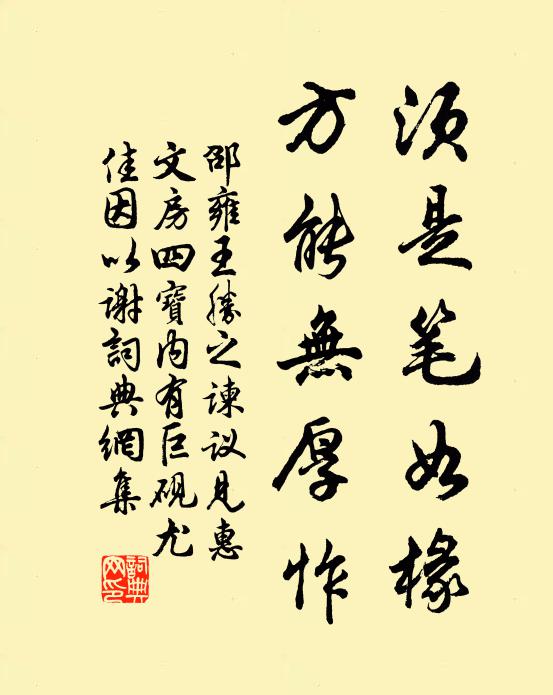 須是笔如椽
方能無厚怍
邵雍王勝之諫议見惠
文房四寶内有巨硯尤
佳因以谢詞典網集
詞典
网印